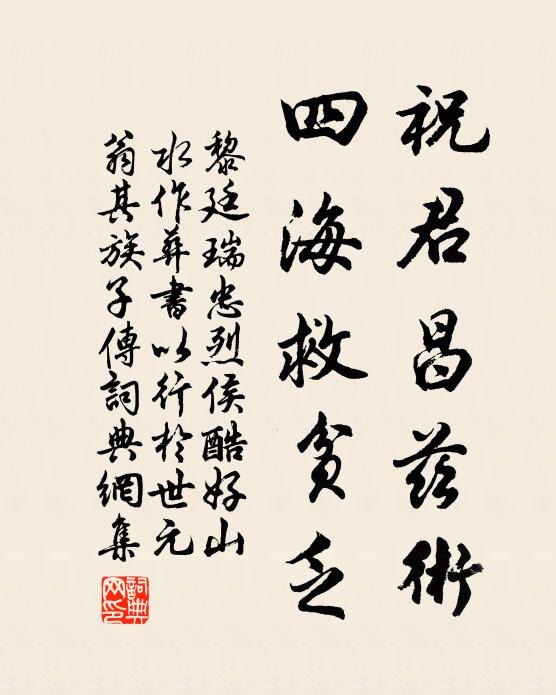 祝君昌茲術
四海救貧乏
黎廷瑞忠烈侯酷好山
水作葬書以行於世元
翁其族子傳詞典網集
詞典網印